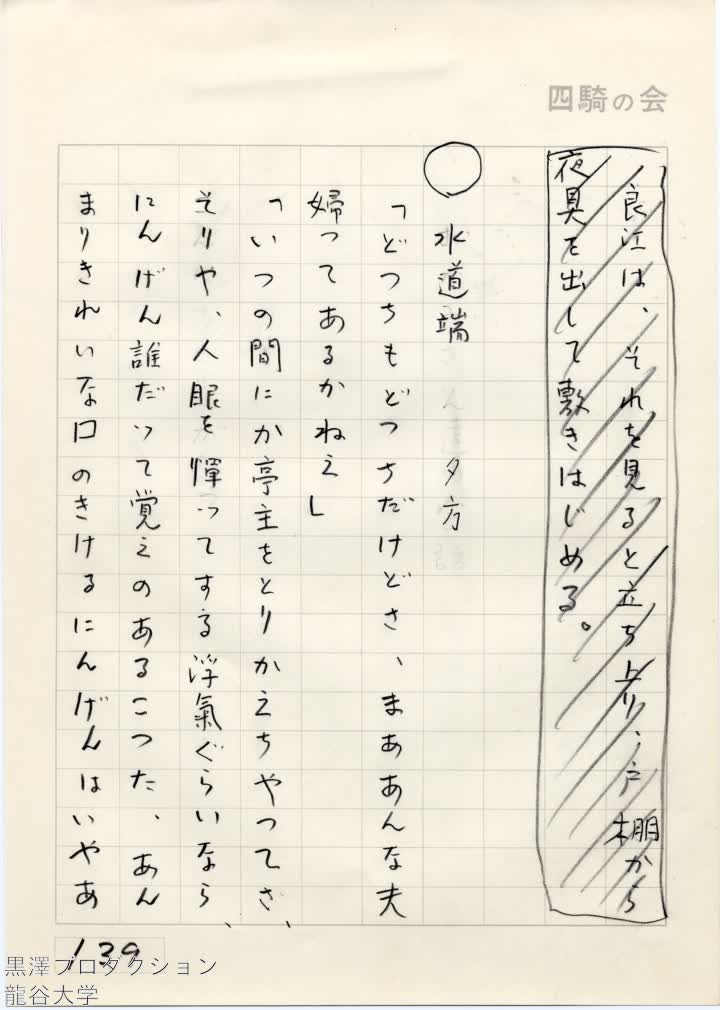 四騎の会
良江は、それを見ると立ち上り、戸棚から
夜具を出して敷きはじめる。
○　水道端　　夕方
「どつちもどつちだけどさ、まああんな夫
婦ってあるかねえ」
「いつの間にか亭主をとりかえちやつてさ、
そりや、人眼を憚ってする浮氣ぐらいなら、
にんげん誰だって覚えのあるこつた、あん
まりきれいな口のきけるにんげんはいやあ
139
黒澤プロダクション
龍谷大学